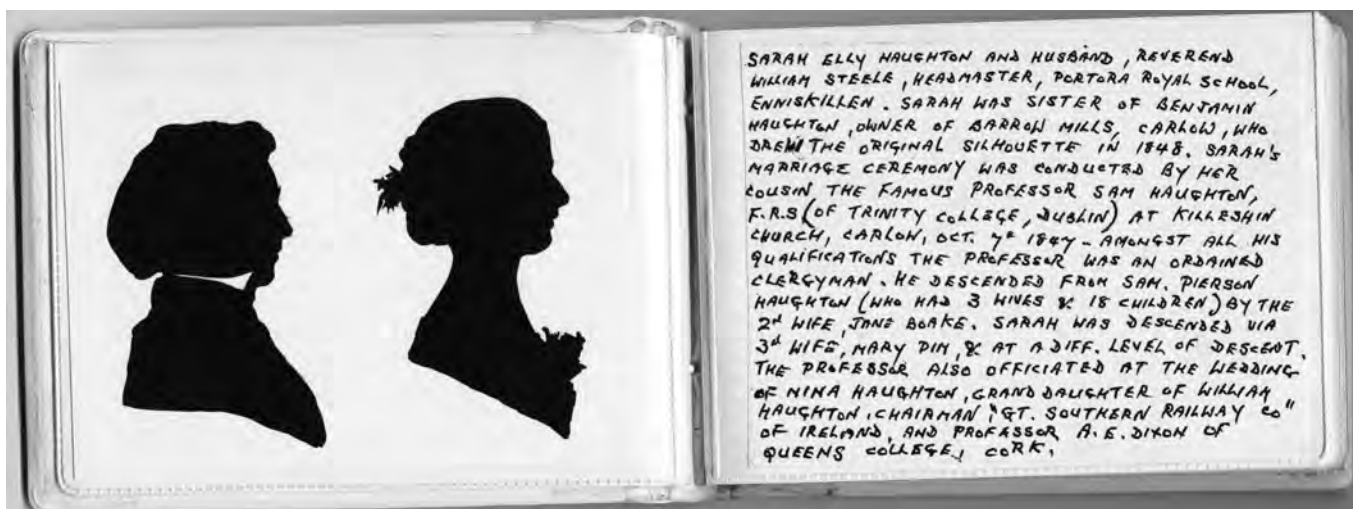 SARAH ELLY HAUGHTON AND HUSBAND, REVEREND
WILLIAM STEELE, HEADMASTER, PORTORA ROYAL SCHOOL,
ENNISKILLEN. SARAH WAS SISTER OF BENJAMIN
HAUGHTON, OWNER OF BARROW MILLS, CARLOW, WHO
DREW THE ORIGINAL SILHOUETTE IN 1848. SARAH'S
MARRIAGE CEREMONY WAS CONDUCTED BY HER
COUSIN THE FAMOUS PROFESSOR SAM HAUGHTON,
F.R.S (OF TRINITY COLLEGE, DUBLIN) AT KILLESHIN
CHURCH, CARLOW, OCT. 1847 - AMONGST ALL HIS
QUALIFICATIONS THE PROFESSOR WAS AN ORDAINED
CLERGYMAN. HE DESCENDED FROM SAM. PIERSON
HAUGHTON (WHO HAD 3 WIVES & 18 CHILDREN) BY THE
2d WIFE, JANE BOAKE. SARAH WAS DESCENDED VIA
3d WIFE, MARY PIM, & AT A DIFF. LEVEL OF DESCENT.
THE PROFESSOR ALSO OFFICIATED AT THE WEDDING
OF NINA HAUGHTON, GRAND DAUGHTER OF WILLIAM
HAUGHTON, CHAIRMAN, "GT. SOUTHERN RAILWAY CO"
OF IRELAND, AND PROFESSOR A. E. DIXON OF
QUEENS COLLEGE, CORK.